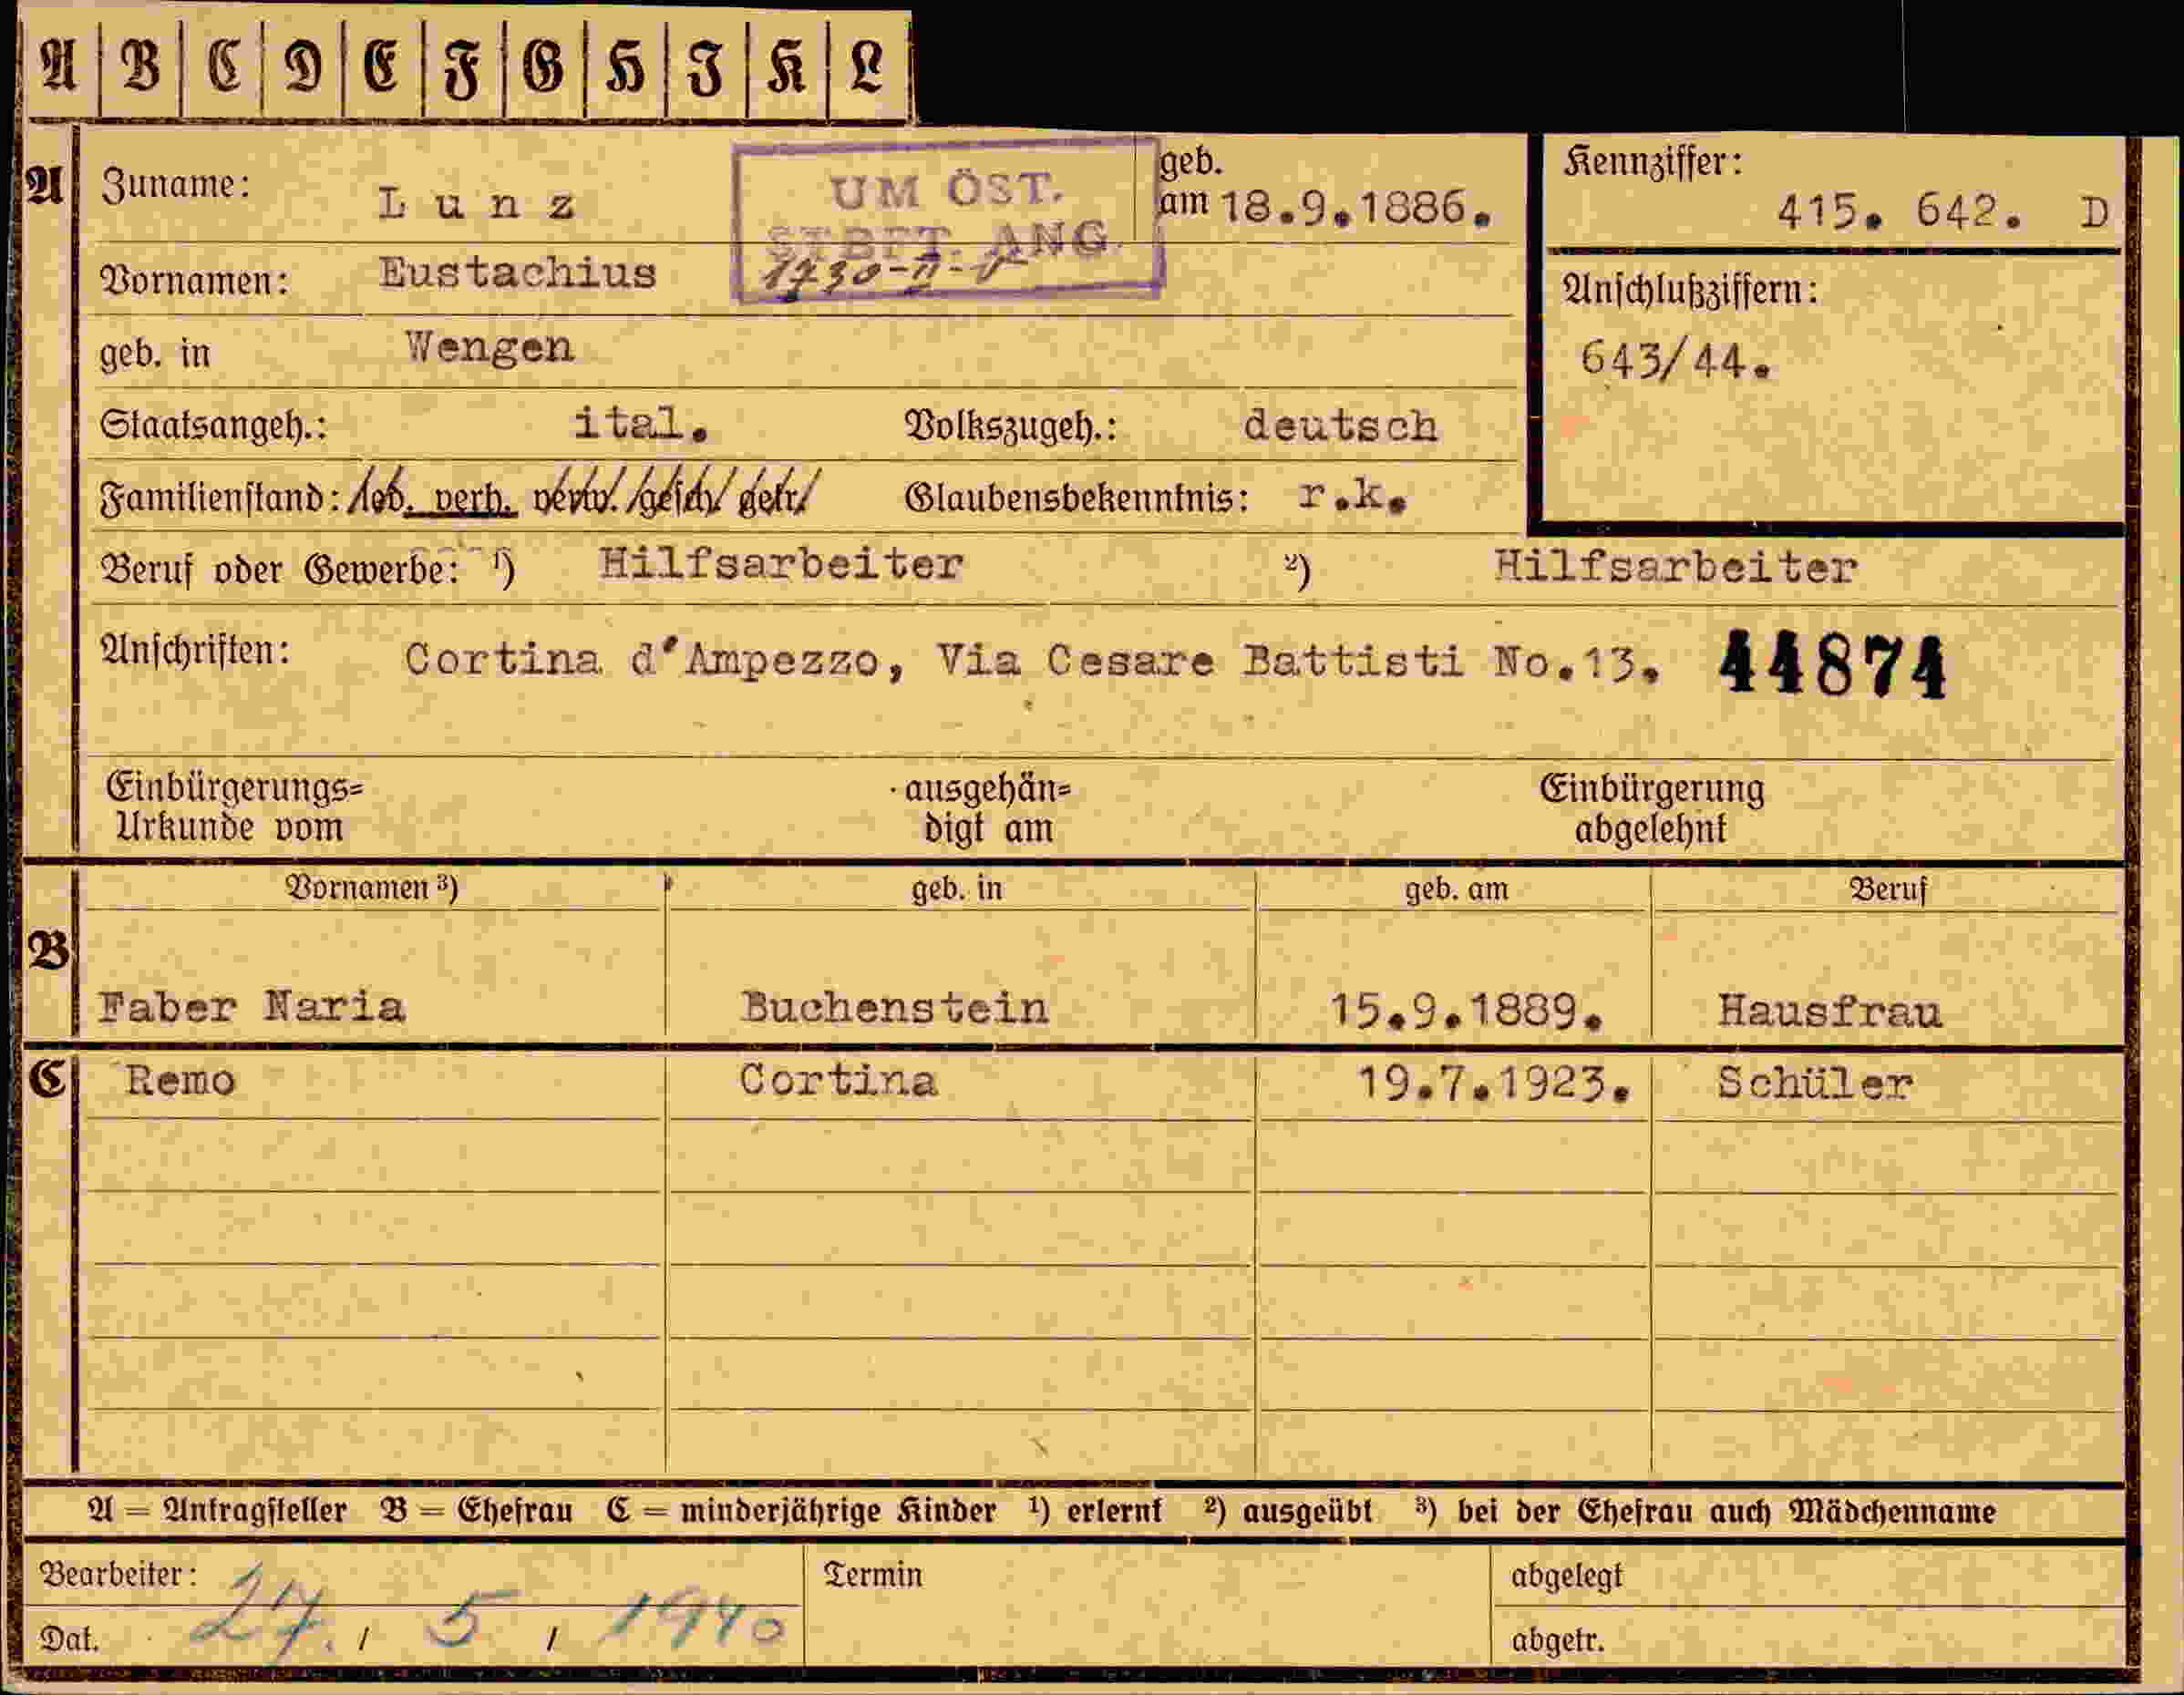 A B C D E F G H I K L
A Zuname: Lunz UM ÖST. STBFT. ANG. geb. am 18.9.1886. Kennziffer: 415. 642. D
Vornamen: Eustachius Anschlußziffern:
geb. in Wengen 643/44.
Staatsangeh.: ital. Volkszugeh.: deutsch
Familienstand: led. verh. verw. gesch. getr. Glaubensbekenntnis: r.k.
Beruf oder Gewerbe: ¹) Hilfsarbeiter ²) Hilfsarbeiter
Anschriften: Cortina d'Ampezzo, Via Cesare Battisti No.13. 44874
Einbürgerungs= ausgehän= Einbürgerung
Urkunde vom digt am abgelehnt
Vornamen ³) geb. in geb. am Beruf
B
Faber Naria Buchenstein 15.9.1889. Hausfrau
C Remo Cortina 19.7.1923. Schüler
A = Antragsteller B = Ehefrau C = minderjährige Kinder ¹) erlernt ²) ausgeübt ³) bei der Ehefrau auch Mädchenname
Bearbeiter: Termin abgelegt
Dat. 27. / 5 / 1940 abgetr.